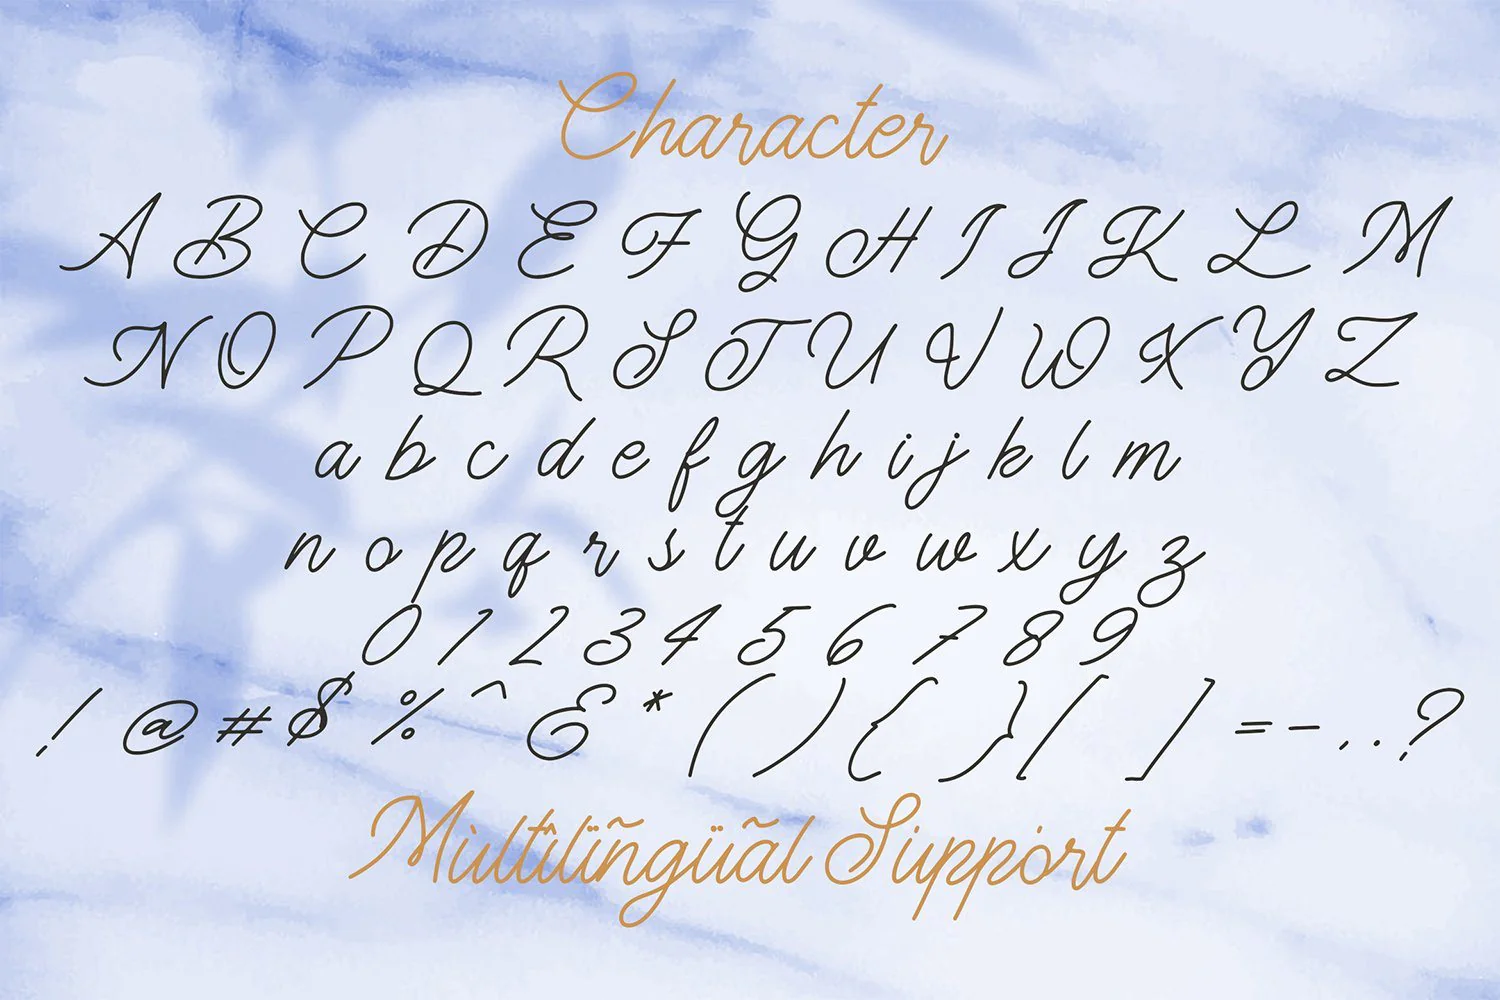 Character
A B C D E F G H I J K L M
N O P Q R S T U V W X Y Z
a b c d e f g h i j k l m
n o p q r s t u v w x y z
0 1 2 3 4 5 6 7 8 9
! @ # $ % ^ & * ( ) { } [ ] = - , . ?
Mùltîlïñgüãl Sùppórt